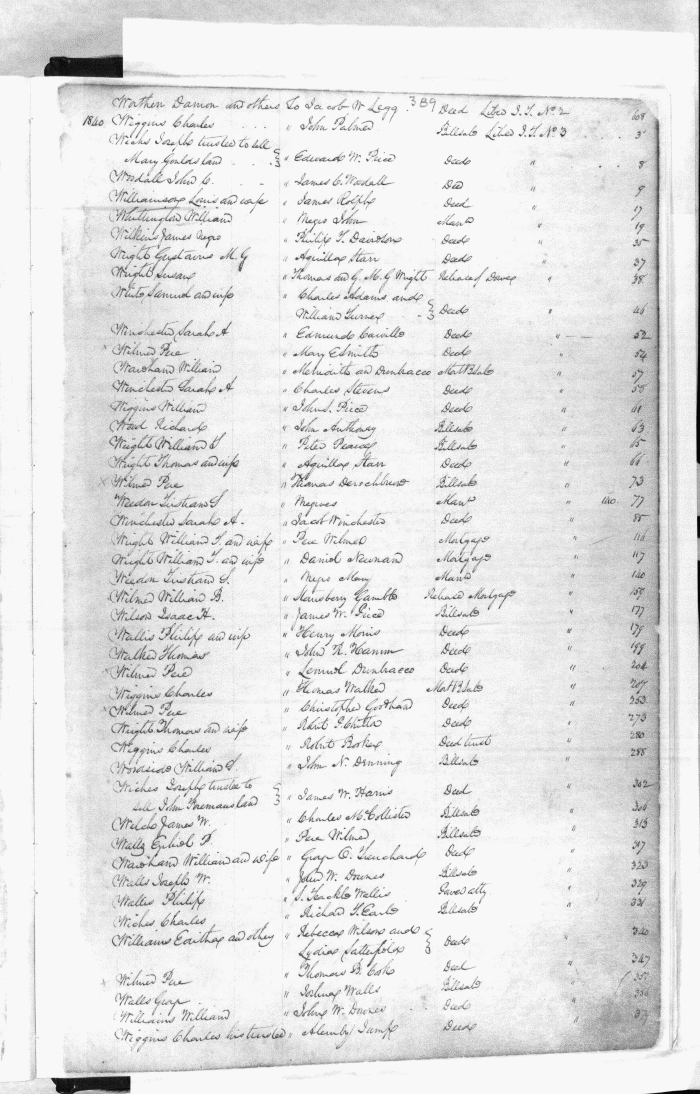 389
Worthen Damon and others to Jacob W Legg Deed Liber J.T. No 2 408
1840 Wiggins Charles " John Palmer Billsale Liber J.T. No 3 3
Wickes Joseph trustee to sell
Mary Goulds land " Edward W. Price Deed " 8
Woodall John C. " James C. Woodall Deed " 9
Williamson Louis and wife " James Rolph Deed " 17
Whittington William " Negro John Manu " 19
Wilkins James negro " Philip T. Davidson Deed " 35
Wright Gustavus M. G " Aquilla Starr Deed " 37
Wright Susan " Thomas and G. M. G Wright Release of Dower " 38
White Samuel and wife " Charles Adams and
William Turner Deed " 46
Winchester Sarah A " Edmund Deed " 52
Wilmer Pere " Mary E Smith Deed " 54
Wareham William " Meridith and Dunbracco Mort Bsale " 57
Winchester Sarah A " Charles Stevens Deed " 58
Wiggins William " John S. Price Deed " 61
Wood Richard " John Anthony Billsale " 63
Wright William S " Peter Pearce Billsale " 65
Wright Thomas and wife " Aquilla Starr Deed " 66
x Wilmer Pere " Thomas Billsale " 73
Weedon Tristram S " Negroes Manu " 140. 77
Winchester Sarah A. " Jacob Winchester Deed " 85
Wright William S. and wife " Pere Wilmer Mortgage " 116
Wright William S. and wife " Daniel Newnam Mortgage " 117
Weedon Tristram S. " Negro Mary Manu " 140
Wilmer William B. " Hansberry Gamble Release Mortgage " 159
Wilson Isaac H. " James W. Price Billsale " 177
Wallis Philip and wife " Henry Morris Deed " 179
Walker Thomas " John R. Hamm Deed " 199
Wilmer Pere " Lemuel Dunbracco Deed " 204
Wiggins Charles " Thomas Walker Mort Bsale " 207
Wilmer Pere " Christopher Goodhand Deed " 253
Wright Thomas and wife " Robert Deed " 273
Wiggins Charles " Robert Booker Deed trust " 280
Woodside William S " John N. Denning Billsale " 288
Wickes Joseph trustee to
sell John Freemans land " James W. Harris Deed " 302
Welch James W. " Charles McCollister Billsale " 304
Walls P. " Pere Wilmer Billsale " 313
Wareham William and wife " George O. Trenchard Deed " 317
Walls Joseph W. " John W. Downes Billsale " 323
Wallis Philip " S. Teackle Wallis Power atty " 329
Wickes Charles " Richard T. Earle Billsale " 331
Williams Editha and others " Rebecca Wilson and
Lydia Satterfield Deed " 340
x Wilmer Pere " Thomas B. Cook Deed " 347
Walls George " Joshua Walls Billsale "
Williams William " John W. Downes Deed "
Wiggins Charles his trustee " Deed "